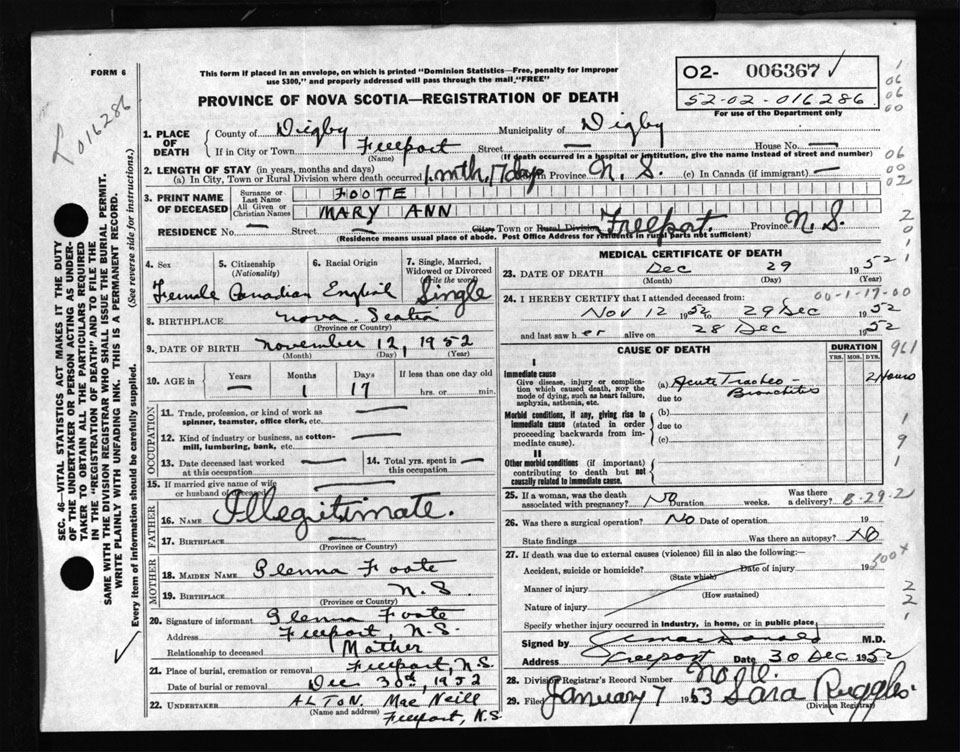 FORM 6
This form if placed in an envelope, on which is printed "Dominion Statistics—Free, penalty for improper
use $300," and properly addressed will pass through the mail "FREE"
PROVINCE OF NOVA SCOTIA—REGISTRATION OF DEATH
O2- 006367 ✓
52-02-016286
For use of the Department only
016286
1. PLACE OF DEATH
County of Digby Municipality of Digby
If in City or Town Freeport Street — House No. —
(Name) (If death occurred in a hospital or institution, give the name instead of street and number)
2. LENGTH OF STAY (in years, months and days)
(a) In City, Town or Rural Division where death occurred 1 mth, 17 days In Province N. S. (c) In Canada (if immigrant) —
3. PRINT NAME OF DECEASED
Surname or Last Name FOOTE
All Given or Christian Names MARY ANN
RESIDENCE No. — Street — City, Town or Rural Division Freeport. Province N.S.
(Residence means usual place of abode. Post Office Address for residents in rural parts not sufficient)
4. Sex 5. Citizenship (Nationality) 6. Racial Origin 7. Single, Married, Widowed or Divorced (Write the word)
Female Canadian English Single
8. BIRTHPLACE Nova Scotia
(Province or Country)
9. DATE OF BIRTH November 12, 1952
(Month) (Day) (Year)
10. AGE in Years — Months 1 Days 17 If less than one day old hrs. or min.
OCCUPATION
11. Trade, profession, or kind of work as spinner, teamster, office clerk, etc. —
12. Kind of industry or business, as cotton-mill, lumbering, bank, etc. —
13. Date deceased last worked at this occupation — 14. Total yrs. spent in this occupation —
15. If married give name of wife or husband of deceased —
FATHER
16. NAME Illegitimate.
17. BIRTHPLACE —
(Province or Country)
MOTHER
18. MAIDEN NAME Glenna Foote
19. BIRTHPLACE N.S.
(Province or Country)
20. Signature of informant Glenna Foote
Address Freeport, N.S.
Relationship to deceased Mother
21. Place of burial, cremation or removal Freeport, N.S.
Date of burial or removal Dec 30th, 1952
22. UNDERTAKER ALTON. Mac Neill
(Name and address) Freeport, N.S
MEDICAL CERTIFICATE OF DEATH
23. DATE OF DEATH Dec 29 1952
(Month) (Day) (Year)
24. I HEREBY CERTIFY that I attended deceased from: 00-1-17-00
Nov 12 1952 to 29 Dec 1952
and last saw h er alive on 28 Dec 1952
CAUSE OF DEATH DURATION
YRS. MOS. DYS.
I
Immediate cause
Give disease, injury or complication which caused death, not the mode of dying, such as heart failure, asphyxia, asthenia, etc.
(a) Acute Tracheo-Bronchitis 2 Hours
due to
Morbid conditions, if any, giving rise to immediate cause (stated in order proceeding backwards from immediate cause).
(b)
due to
(c)
II
Other morbid conditions (if important) contributing to death but not causally related to immediate cause.
25. If a woman, was the death associated with pregnancy? No Duration weeks. Was there a delivery? B-29-2
26. Was there a surgical operation? No Date of operation 19
State findings Was there an autopsy? No
27. If death was due to external causes (violence) fill in also the following:—
Accident, suicide or homicide? Date of injury 19
(State which)
Manner of injury
(How sustained)
Nature of injury
Specify whether injury occurred in industry, in home, or in public place
Signed by MacDonald M.D.
Address Freeport Date 30 Dec 1952
28. Division Registrar's Record Number
29. Filed January 7 1953 Sara Ruggles
(Division Registrar)
961
500x
SEC. 46—VITAL STATISTICS ACT MAKES IT THE DUTY
OF THE UNDERTAKER OR PERSON ACTING AS UNDER-
TAKER TO OBTAIN ALL THE PARTICULARS REQUIRED
IN THE "REGISTRATION OF DEATH" AND TO FILE THE
SAME WITH THE DIVISION REGISTRAR WHO SHALL ISSUE THE BURIAL PERMIT.
WRITE PLAINLY WITH UNFADING INK. THIS IS A PERMANENT RECORD.
Every item of information should be carefully supplied. (See reverse side for instructions.)